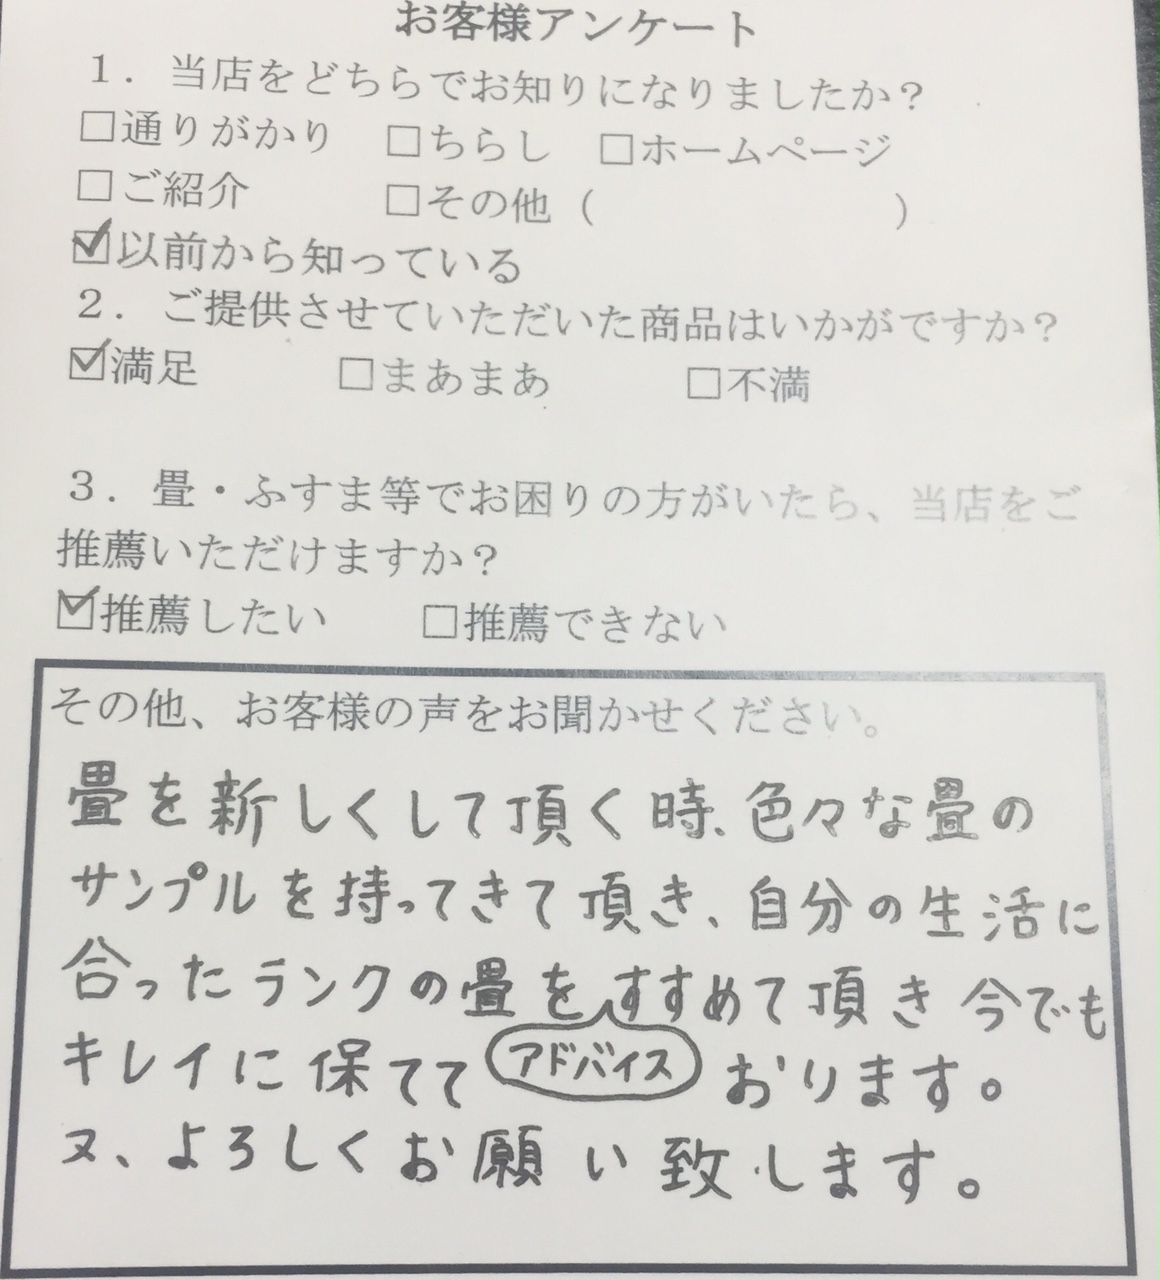 お客様アンケート
1．当店をどちらでお知りになりましたか？
□通りがかり　□ちらし　□ホームページ
□ご紹介　□その他（　　　　　　　）
☑以前から知っている
2．ご提供させていただいた商品はいかがですか？
☑満足　□まあまあ　□不満
3．畳・ふすま等でお困りの方がいたら、当店をご
推薦いただけますか？
☑推薦したい　□推薦できない
その他、お客様の声をお聞かせください。
畳を新しくして頂く時、色々な畳の
サンプルを持ってきて頂き、自分の生活に
合ったランクの畳をすすめて頂き 今でも
キレイに保てて アドバイス おります。
又、よろしくお願い致します。